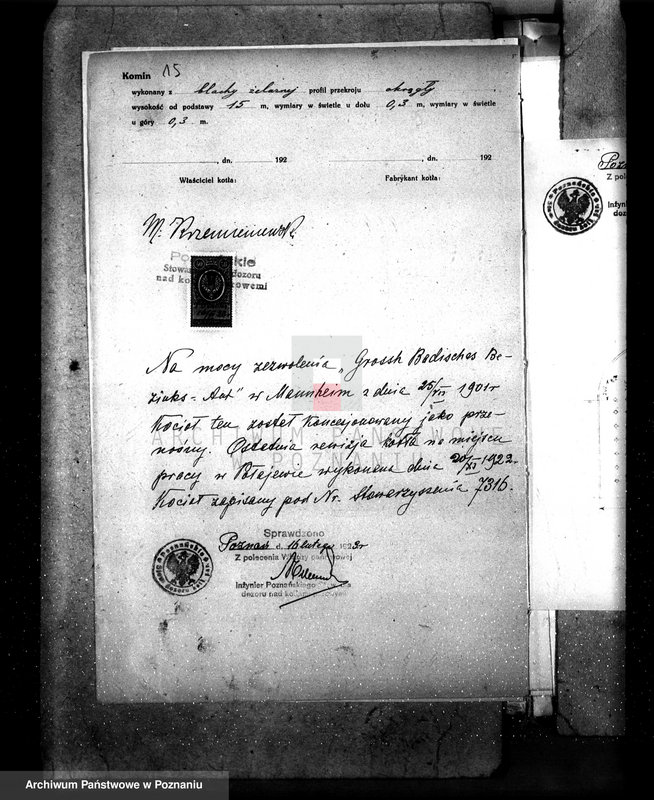 Komin 15
wykonany z blachy żelaznej profil przekroju okrągły
wysokość od podstawy 15 m, wymiary w świetle u dołu 0,3 m, wymiary w świetle
u góry 0,3 m.
, dn. 192 , dn. 192
Właściciel kotła: Fabrykant kotła:
M. Krzemieniewski
Poznańskie
Stowarz dozoru
nad kot parowemi
Na mocy zezwolenia „Grossh Badisches Be-
zirks-Amt" w Mannheim z dnia 25/VII 1901 r
Kocioł ten został koncesjonowany jako prze-
nośny. Ostatnia rewizja kotła na miejscu
pracy w Połajewie wykonana dnia 20/XI 1922.
Kocioł zapisany pod Nr. Stowarzyszenia 7316.
ARCHIWUM PAŃSTWOWE
W POZNANIU
Sprawdzono
Poznań d. 16 lutego 1923 r
Z polecenia Władzy państwowej
Inżynier Poznańskiego
dozoru nad kotłami parowemi
Poz
Z pole
Inżyni
dozo
Archiwum Państwowe w Poznaniu